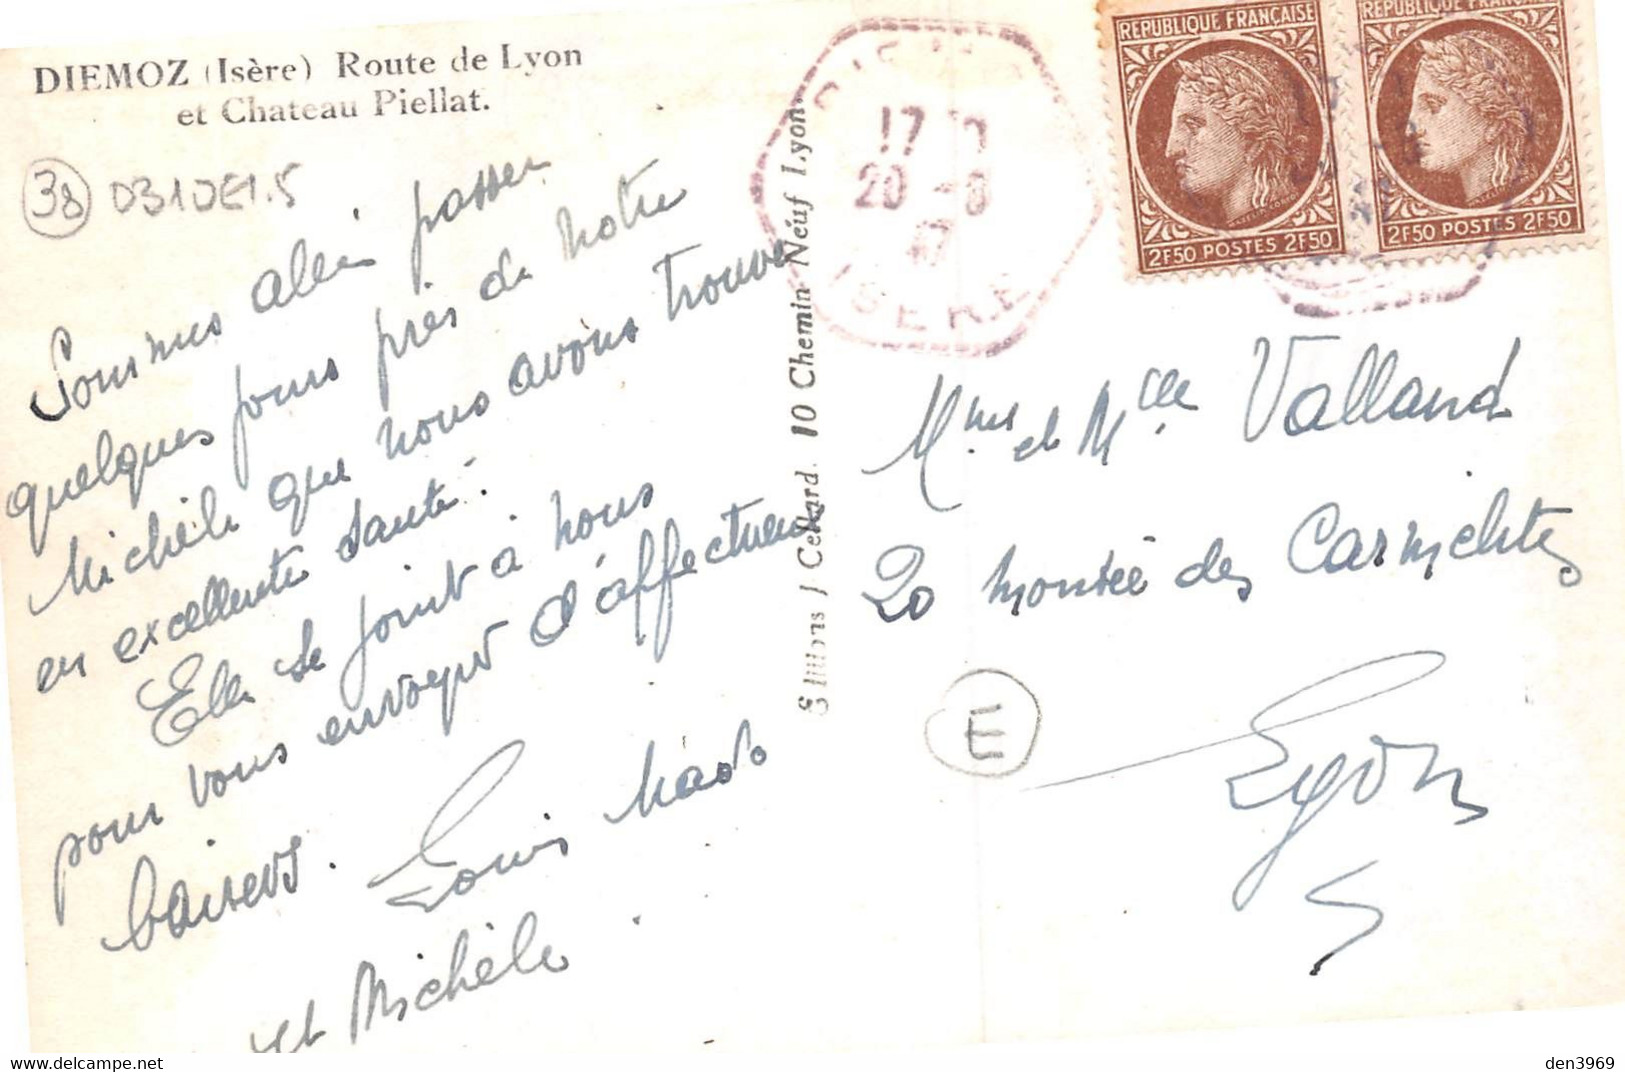 DIEMOZ (Isère) Route de Lyon
et Chateau Piellat.
38 D31DE1.5
Sommes allés passer
quelques jours près de notre
Michèle que nous avons trouvé
en excellente santé.
Elle se joint à nous
pour vous envoyer d'affectueux
baisers. Louis Mado
et Michèle
Editions J Cellard. 10 Chemin Neuf Lyon
17
20 -8
47
ISERE
REPUBLIQUE FRANÇAISE
2F50 POSTES 2F50
REPUBLIQUE FRANÇAISE
2F50 POSTES 2F50
Mme et Mlle Valland
20 montée des Carmélites
Lyon
E
den3969